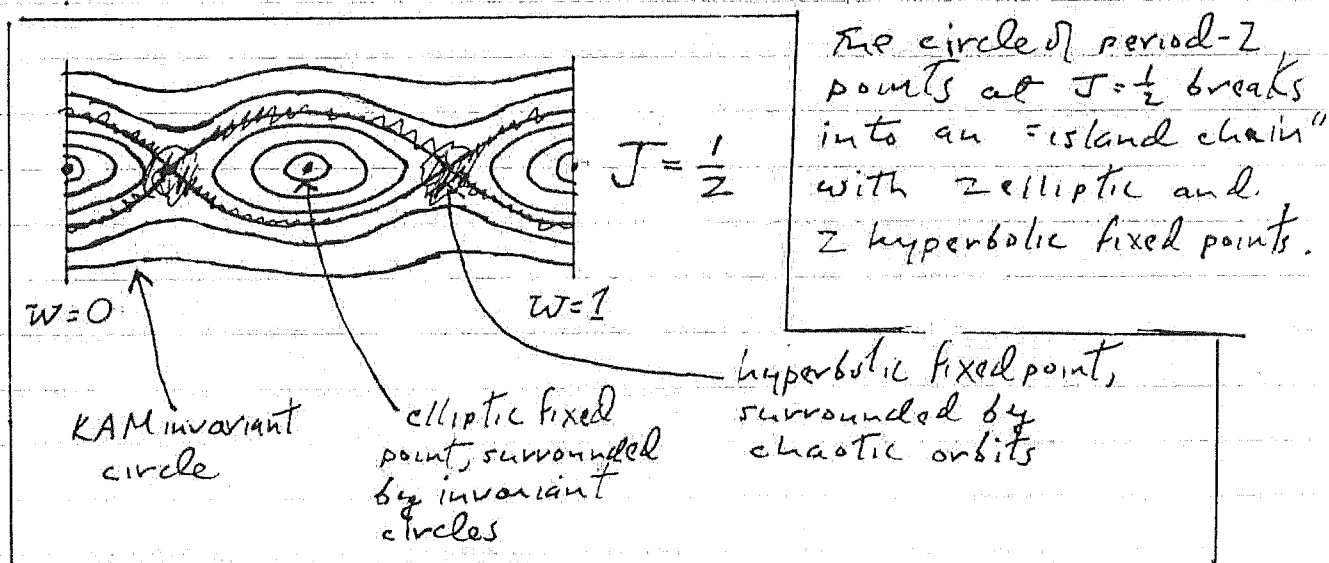 The circle of period-2
points at J=½ breaks
into an "island chain"
with 2 elliptic and
2 hyperbolic fixed points.
J = 1/2
w=0
w=1
KAM invariant
circle
elliptic fixed
point, surrounded
by invariant
circles
hyperbolic fixed point,
surrounded by
chaotic orbits